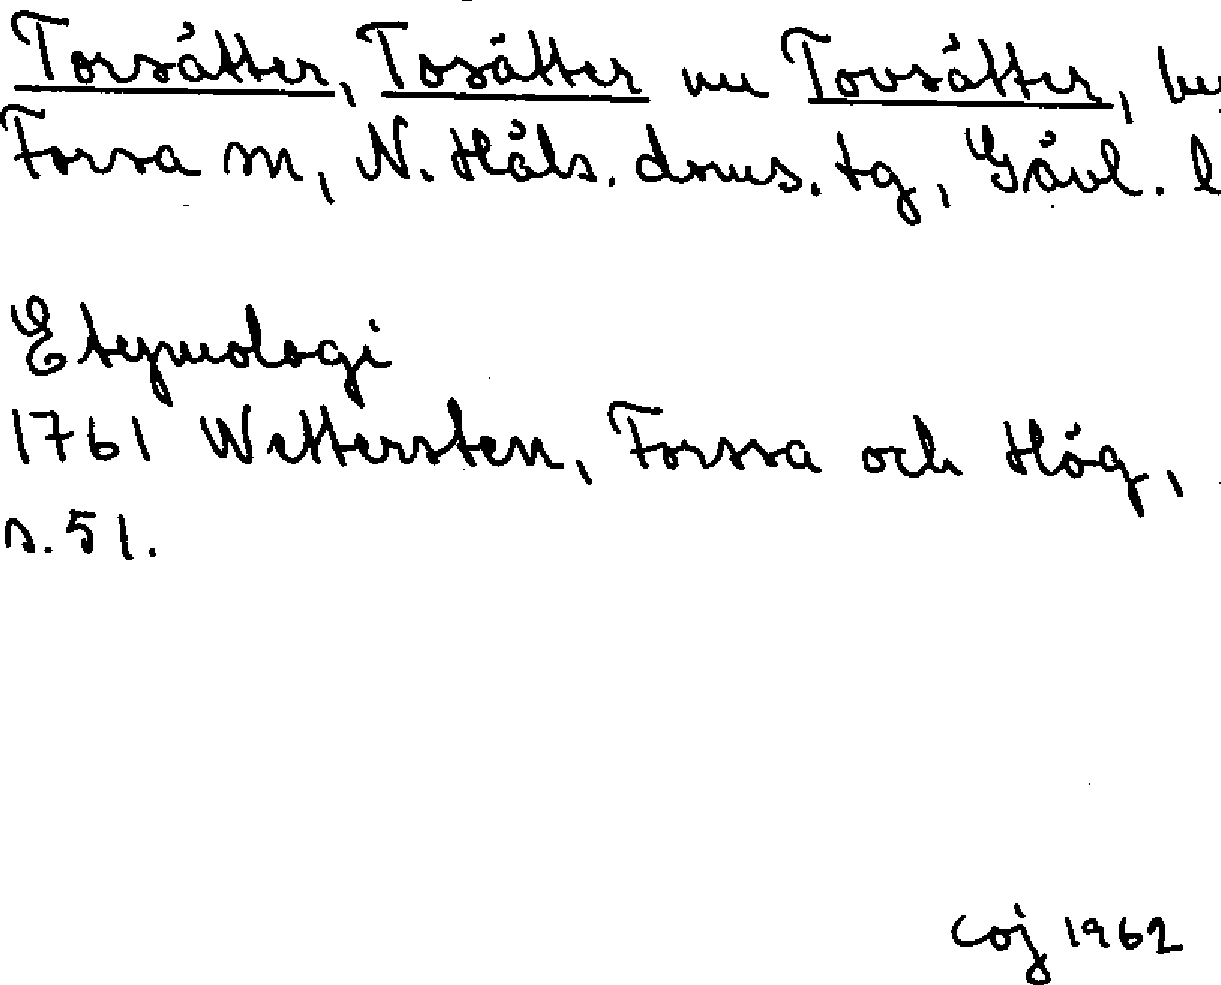 Torsätter, Tosätter nu Tovsätter, by
Forsa sn, N. Häls. doms. tg, Gävl. l
Etymologi
1761 Wettersten, Forssa och Hög,
s. 51.
coj 1962